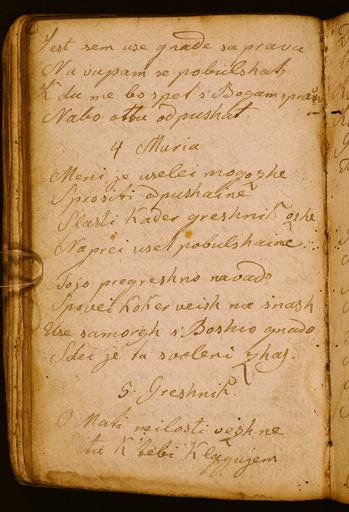 Jest sem use gnade saprava
Na vupam se pobulshat,
K du me bo spet s' Bogam sprav
Nabo otbu odpushat
4 Muria
Meni je uselei mogozhe
Sprositi odpushaine
Slasti Kader greshnik ozhe
Naprei use pobulshaine.
Tojo pregreshno navado
Spovei Koker veish no snash
Use samorgh s' Boshio gnado
Sdei je ta svoleni zhas.
5. Greshnik.
O Mati milosti vezhne
tu K' tebi Klagujem